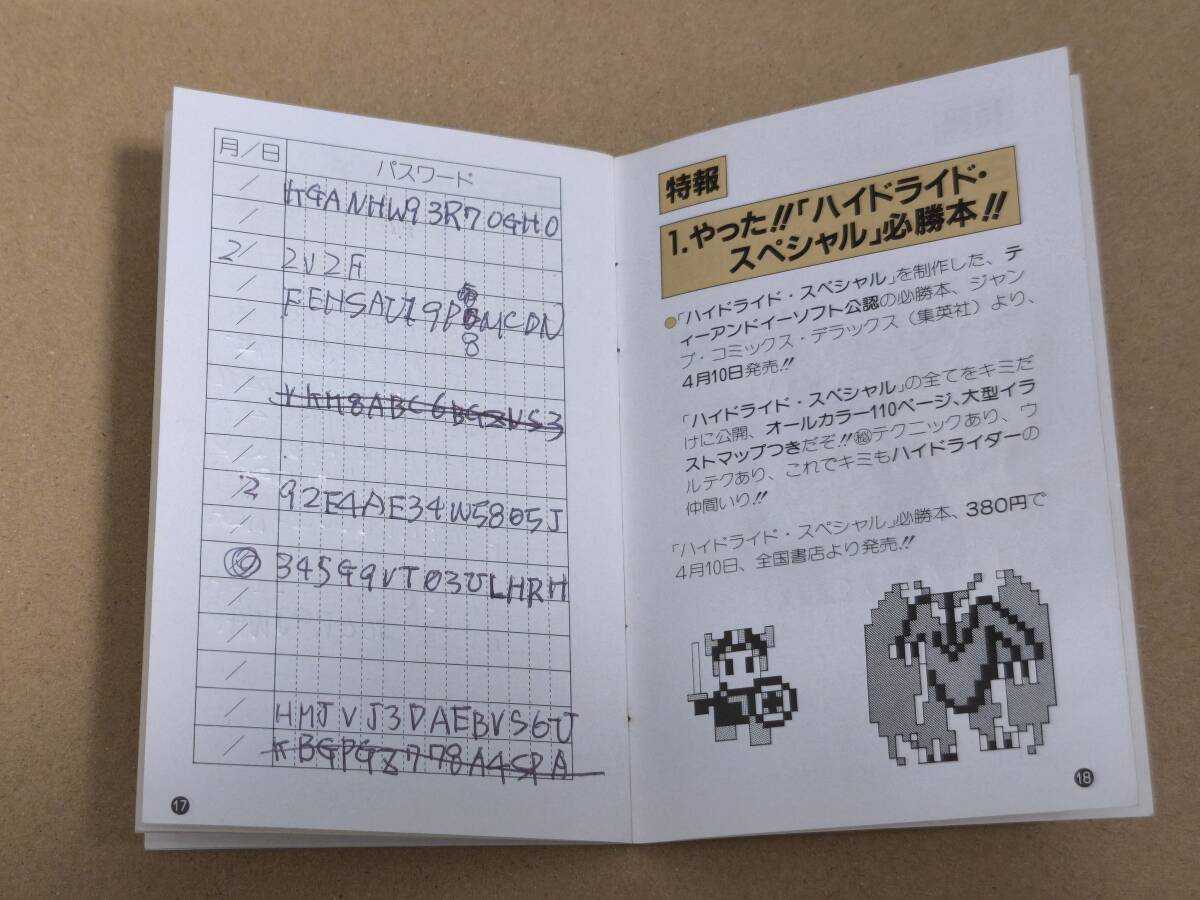 月/日 パスワード
/ KGANHW93R70GH0
/
2/ 2V2F
/ FENSAUZ9P8MCDN
/
/ YKH8ABC6BGZVS3
/
/
/2 92E4AE34W5805J
/
345G9VT03ULHRH
/
/
/
/ HMJVJ3DAEBVS6U
/ KBGPGZ778A4SPA
17
特報
1.やった!!「ハイドライド・
スペシャル」必勝本!!
●「ハイドライド・スペシャル」を制作した、テ
ィーアンドイーソフト公認の必勝本、ジャン
プ・コミックス・デラックス(集英社)より、
4月10日発売!!
「ハイドライド・スペシャル」の全てをキミだ
けに公開、オールカラー110ページ、大型イラ
ストマップつきだぞ!!㊙テクニックあり、ウ
ルテクあり、これでキミもハイドライダーの
仲間いり!!
「ハイドライド・スペシャル」必勝本、380円で
4月10日、全国書店より発売!!
18